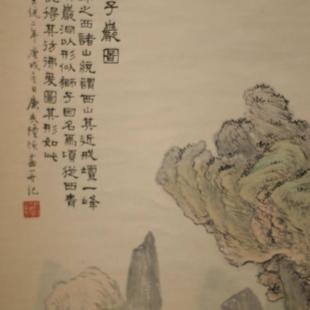 子巖圖
之西諸山統謂西山其近戒壇一峰
巖洞以形似獅子因名焉頃從西青
得其彷彿爰圖其形如此
統二年庚戌冬日廣